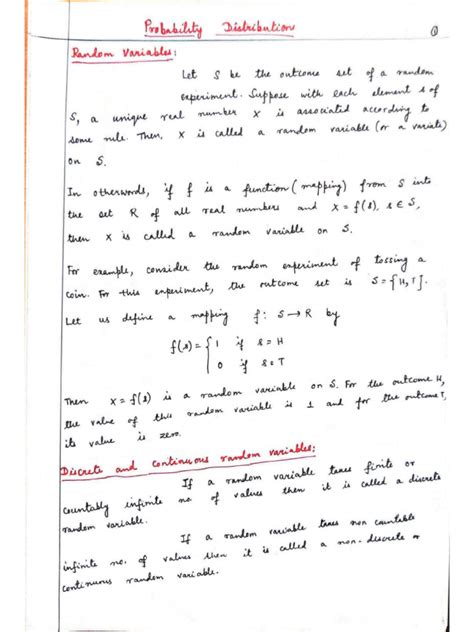 Probability Distribution
Random Variables:
Let S be the outcome set of a random
experiment. Suppose with each element s of
S, a unique real number X is associated according to
some rule. Then, X is called a random variable (or a variate)
on S.
In otherwords, if f is a function (mapping) from S into
the set R of all real numbers and X = f(s), s ∈ S,
then X is called a random variable on S.
For example, consider the random experiment of tossing a
coin. For this experiment, the outcome set is S = {H, T}.
Let us define a mapping f: S → R by
f(s) = { 1 if s = H
0 if s = T
Then X = f(s) is a random variable on S. For the outcome H,
the value of this random variable is 1 and for the outcome T,
its value is zero.
Discrete and continuous random variables:
If a random variable takes finite or
countably infinite no. of values then it is called a discrete
random variable.
If a random variable takes non countable
infinite no. of values then it is called a non-discrete or
continuous random variable.